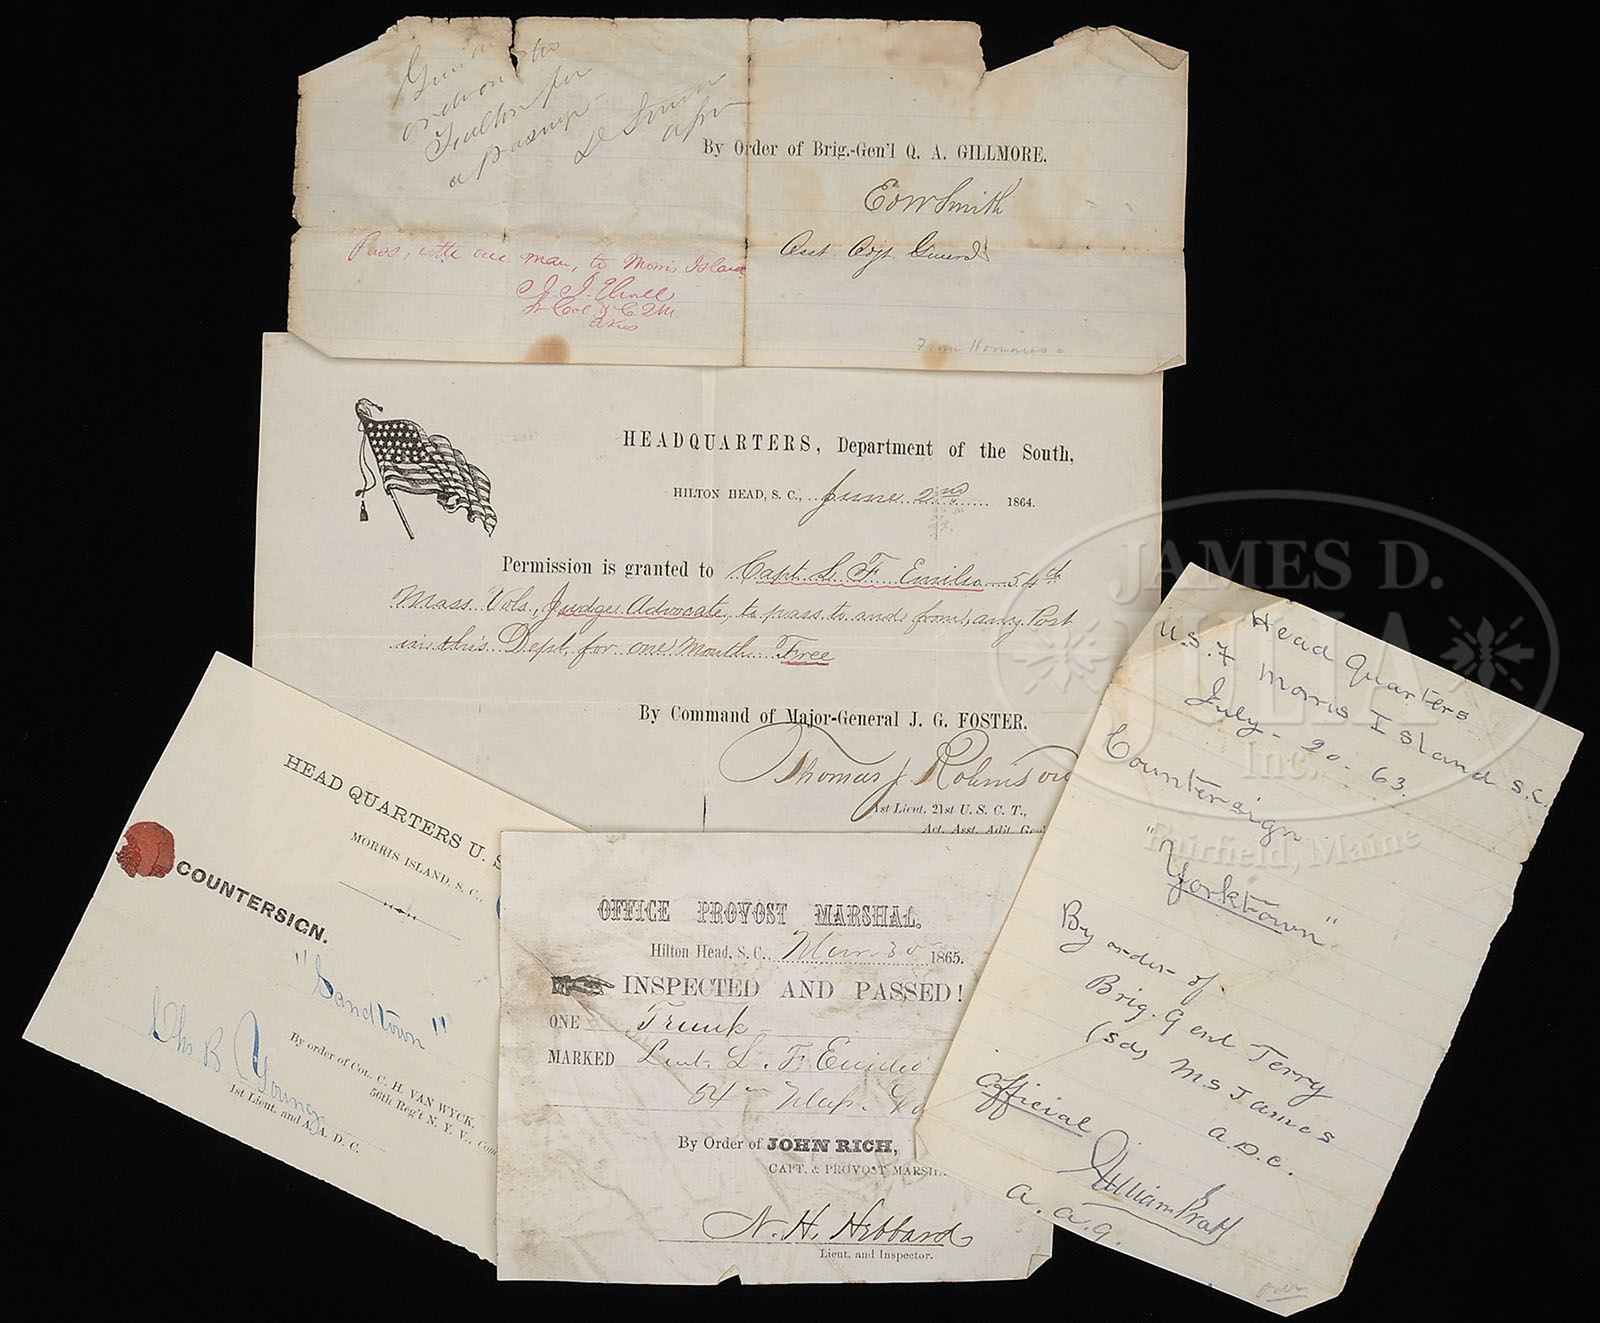 By Order of Brig.-Gen'l Q. A. GILLMORE.
Ed W Smith
Asst Adjt General
Pass, with one man, to Morris Island
HEADQUARTERS, Department of the South,
HILTON HEAD, S. C., June 2nd 1864.
Permission is granted to Capt L F Emilio 54th
Mass Vols, Judge Advocate, to pass to and from any Post
in this Dept. for one Month Free
By Command of Major-General J. G. FOSTER.
Thomas J Robinson
1st Lieut. 21st U. S. C. T.,
Act. Asst. Adjt. Genl
HEAD QUARTERS U. S
MORRIS ISLAND, S. C.,
COUNTERSIGN.
"Sandtown"
By order of COL. C. H. VAN WYCK,
56th Reg't N. Y. V., Com
Chs B Young
1st Lieut. and A. A. D. C.
OFFICE PROVOST MARSHAL.
Hilton Head, S. C. Mar 30 1865.
INSPECTED AND PASSED!
ONE Trunk
MARKED Lieut. L. F Emilio
54th Mass.
By Order of JOHN RICH,
CAPT. & PROVOST MARSHA
N. H. Hebbard
Lieut. and Inspector.
Head Quarters
U.S.F Morris Island S.C.
July - 20 - 63.
Countersign
"Yorktown"
By order of
Brig. Genl Terry
(sd) M S James
A.D.C.
Official
William Pratt
A.A.G.
over
JAMES D.
JULIA
Inc.
Fairfield, Maine